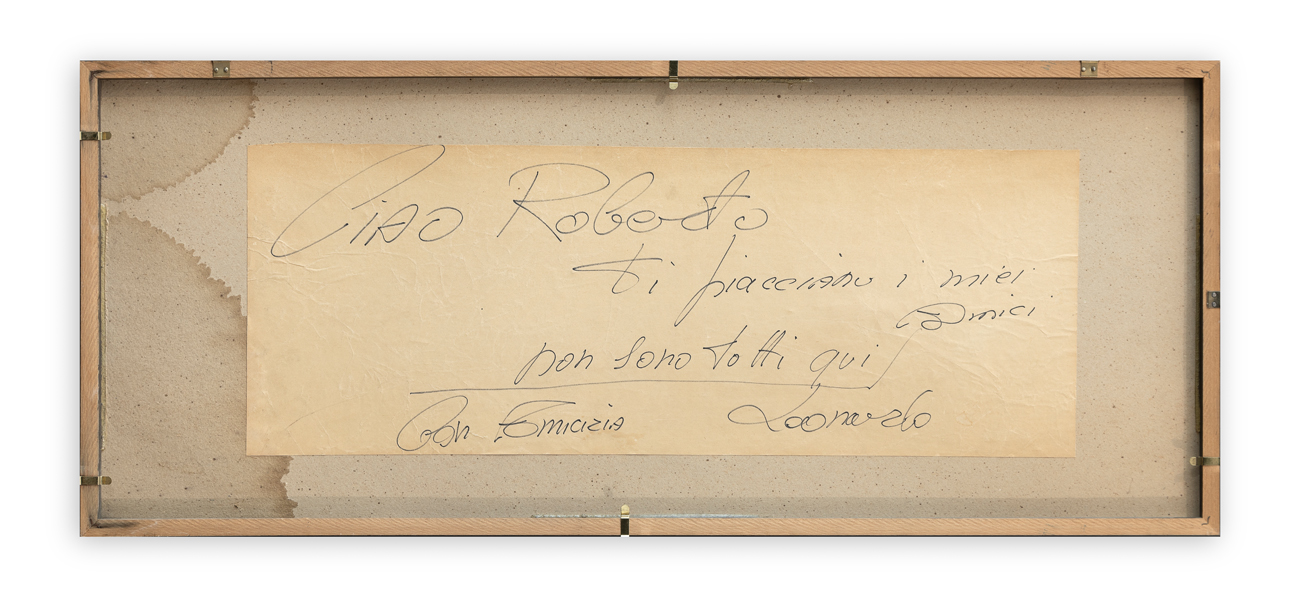 Ciao Roberto
ti piacciono i miei
amici
non sono totti qui
Con Emicizia Leonardo